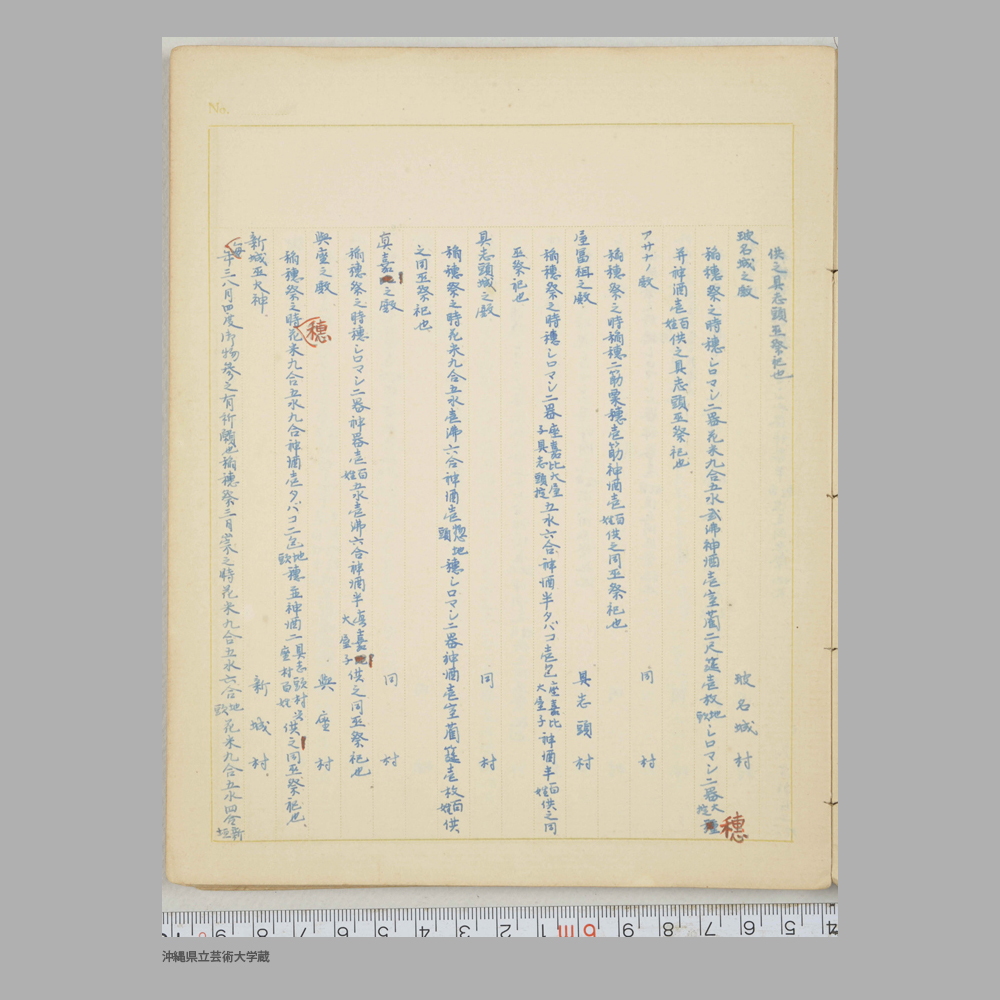 供之具志頭巫祭祀也
玻名城之殿
玻名城村
稲穂祭之時穂シロマシ二器花米九合五水弐沸神酒壱室藺二尺筵壱枚地頭シロマシ二器大掟
穂
并神酒壱百姓供之具志頭巫祭祀也
アサナノ殿
同村
稲穂祭之時稲穂二筋粟穂壱筋神酒壱百姓供之同巫祭祀也
屋冨祖之殿
具志頭村
稲穂祭之時穂シロマシ二器座嘉比大屋子具志頭掟五水六合神酒半タバコ壱包座嘉比大屋子神酒半百姓供之同
巫祭祀也
具志頭城之殿
同村
稲穂祭之時花米九合五水壱沸六合神酒壱惣地頭穂シロマシ二器神酒壱室藺筵壱枚百姓供
之同巫祭祀也
真嘉之殿
同村
稲穂祭之時穂シロマシ二器神器壱百姓五水壱沸六合神酒半真嘉大屋子供之同巫祭祀也
與座之殿
與座村
穂
稲穂祭之時花米九合五水九合神酒壱タバコ二包地頭穂並神酒二具志頭村與座村百姓供之同巫祭祀也
新城巫火神
新城村
毎年三八月四度御物参之有祈願也稲穂祭三日崇之時花米九合五水六合地頭花米九合五水四合新垣
No.
沖縄県立芸術大学蔵